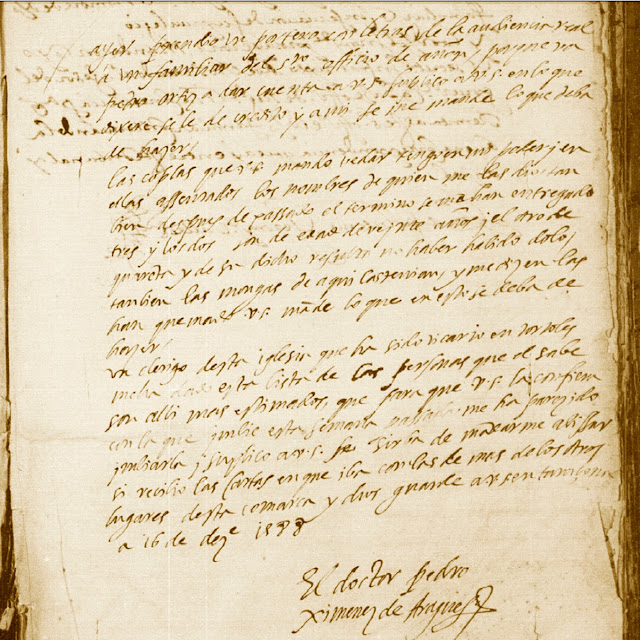 ayer prendio un portero con letras de la audiencia real
a un familiar del sto officio de añon,
pedro ortiz a dar cuenta a v s suplico a v s en lo que
se le de credito y a mi se me mande lo que deba
de hazer
las coplas que v s mando vedar tengo en mi poder y en
ellas assentados los nombres de quien me las dio tan
bien despues de passado el termino se me han entregado
tres y los dos son de edad de veynte años y el otro de
y de su dicho resulta no haber habido dolo,
tambien las monjas de aqui las tenian y me dizen las
han quemado v s mãde lo que en esto se deba de
hazer
un clerigo desta iglesia que ha sido vicario en
me ha dado esta lista de las personas que el sabe
son alli mas estimados, que para que v s la confiera
con la que imbie esta semana passada me ha parezido
imbiarla y suplico a v s se sirva de mãdarme abissar
si recibio las cartas en que iba con las de mas de los otros
lugares desta comarca y dios guarde a v s en tarazona
a 16 de deze 1588
El doctor Pedro
Ximenez de Aragues